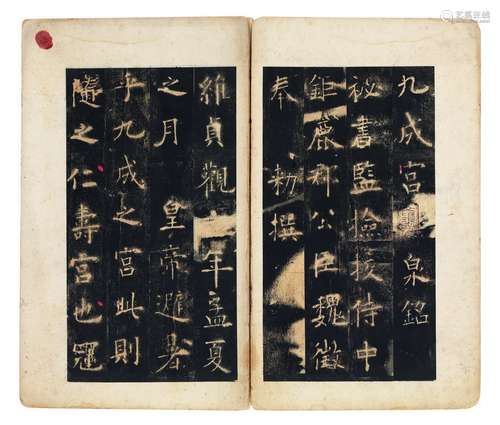 九成宮醴泉銘
祕書監檢挍侍中
鉅鹿郡公臣魏徵
奉 勑撰
維貞觀六年孟夏
之月 皇帝避暑
乎九成之宮此則
隨之仁壽宮也冠
艺狐在线